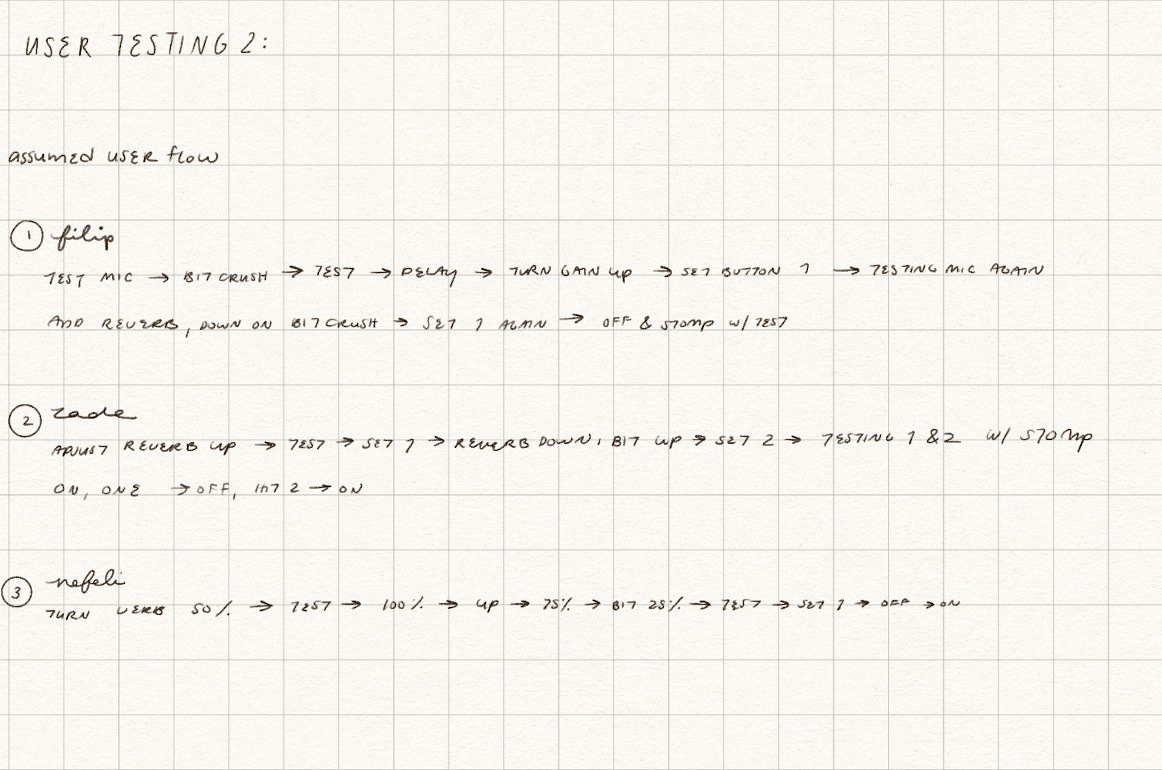 USER TESTING 2:
assumed USER flow
1 filip
TEST MIC → BIT CRUSH → TEST → DELAY → TURN GAIN UP → SET BUTTON 1 → TESTING MIC AGAIN
ADD REVERB, DOWN ON BITCRUSH → SET 1 AGAIN → OFF & STOMP W/ TEST
2 zade
ADJUST REVERB UP → TEST → SET 1 → REVERB DOWN, BIT UP → SET 2 → TESTING 1 & 2 W/ STOMP
ON, ONE → OFF, 2 → ON
3 nefeli
TURN VERB 50% → TEST → 100% → UP → 75% → BIT 25% → TEST → SET 1 → OFF → ON